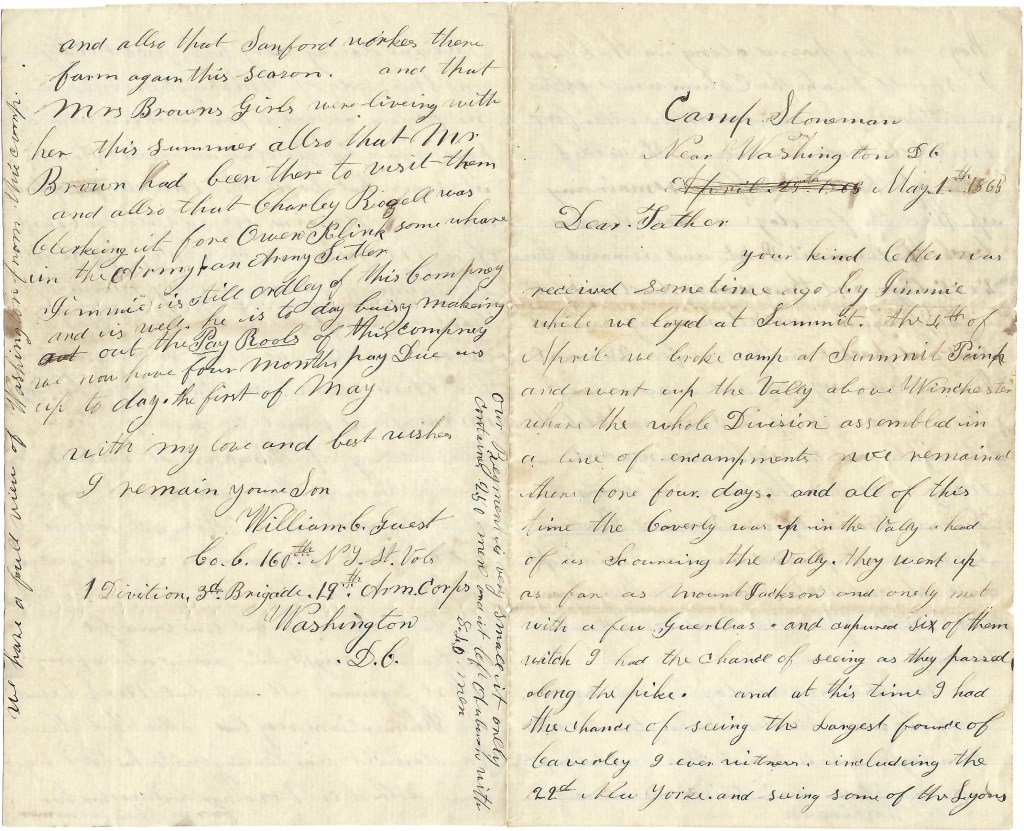 Camp Stoneman
Near Washington D C
April 29th 1865 May 1th 1865
Dear Father
your kind letter was
received sometime ago by Jimmie
while we layd at Summit. the 4th of
April we broke camp at Summit Point
and went up the Vally above Winchester
whare the whole Division assembled in
a line of encampments we remained
there fore four days. and all of this
time the Caverly was up in the Vally a head
of us Scouring the Vally. they went up
as far as Mount Jackson and onely met
with a few Guerllias. and capured six of them
witch I had the chance of seeing as they passed
along the pike. and at this time I had
the chance of seeing the Largest fource of
Caverley I ever witness. includeing the
22d New Yorke. and seeing some of the Lyons
and allso that Sanford workes there
farm again this season. and that
Mrs Browns Girls were liveing with
her this summer allso that Mr
Brown had been there to visit them
and allso that Charley Rogell was
Clerkeing it fore Owen Klink some whare
in the Army an Army Sutler
Jimmie is still ordley of this Compney
and is well. he is to day buisy makeing
out out the Pay Rools of this compney
we now have four months pay Due us
up to day. the first of May
with my love and best wishes
I remain youre Son
William C. Guest
Co. C. 160th N.Y. St. Vols
1 Divition, 3d. Brigade. 19th Arm. Corps
Washington
. D. C.
Our Regiment is very small it onely
contains 450 men and it left Auburn with
men
we have a full view of Washington from this camp.